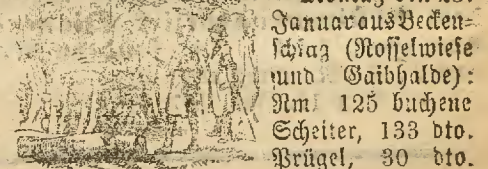 Januar aus Becken-
schlag (Rosselwiese
und Gaibhalde):
Rm. 125 buchene
Scheiter, 133 dto.
Prügel, 30 dto.